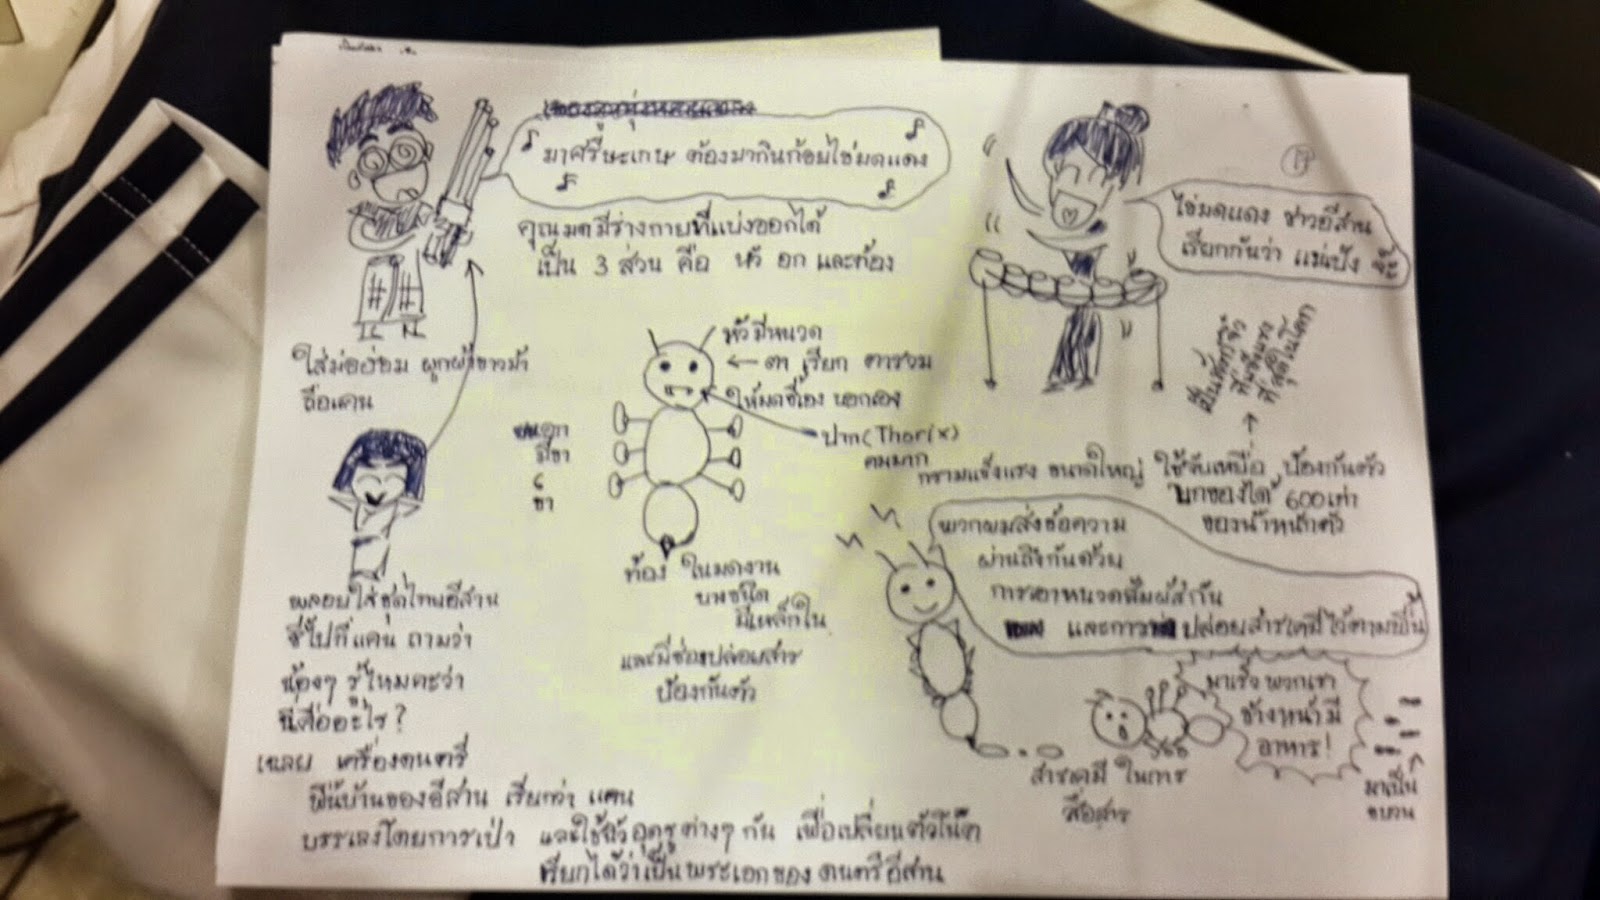 มาศรีษะเกษ ต้องมากินก้อยไข่มดแดง
คุณมดมีร่างกายที่แบ่งออกได้
เป็น 3 ส่วน คือ หัว อก และท้อง
ไข่มดแดง ชาวอีสาน
เรียกกันว่า แม่เป้ง จ้ะ
ใส่ม่อฮ่อม ผูกผ้าขาวม้า
ถือแคน
หัวมีหนวด
← ตา เรียก ตารวม
ให้มดชี้เอง บอกเอง
ปาก (Thorix)
คมมาก
อก
มีขา
6
ขา
ท้อง ในมดงาน
บางชนิด
มีเหล็กใน
และมีช่องปล่อยสาร
ป้องกันตัว
เป็นสัตว์จิ๋ว
ที่แข็งแรง
ที่สุดในโลก
กรามแข็งแรง ขนาดใหญ่ ใช้จับเหยื่อ ป้องกันตัว
ยกของได้ 600 เท่า
ของน้ำหนักตัว
พวกผมส่งข้อความ
ผ่านถึงกันด้วย
การเอาหนวดสัมผัสกัน
และการปล่อยสารเคมีไว้ตามพื้น
มาเร็ว พวกเรา
ข้างหน้ามี
อาหาร!
สารเคมี ในการ
สื่อสาร
มาเป็น
ขบวน
พลอยใส่ชุดไทยอีสาน
ชี้ไปที่แคน ถามว่า
น้องๆ รู้ไหมคะว่า
นี่คืออะไร?
เฉลย เครื่องดนตรี
พื้นบ้านของอีสาน เรียกว่า แคน
บรรเลงโดยการเป่า และใช้นิ้วอุดรูต่างๆ กัน เพื่อเปลี่ยนตัวโน๊ต
เรียกได้ว่าเป็นพระเอกของ ดนตรีอีสาน